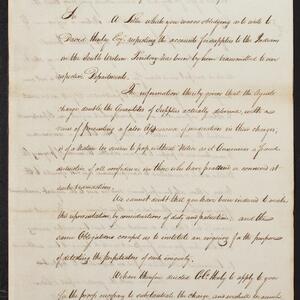 Sir
A Letter which you was so obliging as to write to
David Henly Esqr. respecting the accounts for supplies to the Indians
in the South Western Territory has been by him transmitted to our
respective Departments.
The information thereby given that the Agents
charge double the Quantities of Supplies actually delivered, with a
view of presenting a false appearance of moderation in their charges,
is of a Nature too serious to pass without Notice as it announces a fraud
destructive of all confidence in those who have practised or connived at
such transactions.
We cannot doubt that you have been induced to make
this representation by considerations of duty and patriotism; and the
same Obligations compel us to institute an enquiry for the purpose
of detecting the perpetrators of such enormity.
We have therefore directed Colo. Henly to apply to you
for the proof necessary to substantiate the charge and